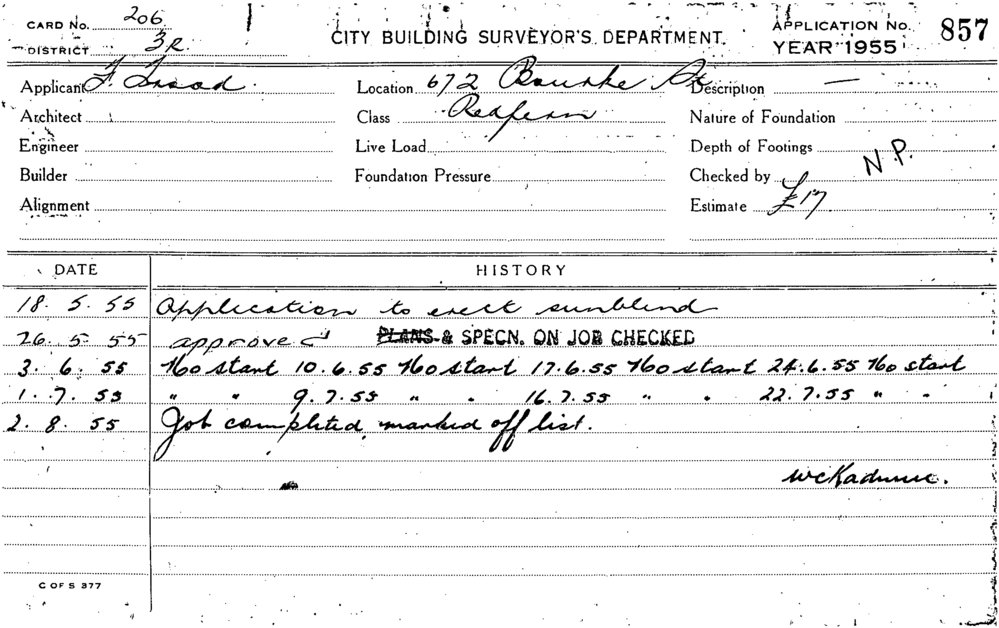 CARD No. 206
DISTRICT 3R
CITY BUILDING SURVEYOR'S DEPARTMENT.
APPLICATION No. 857
YEAR 1955
Applicant F.
Location 672 Bourke St
Description —
Architect
Class Redfern
Nature of Foundation
Engineer
Live Load
Depth of Footings
N.P.
Builder
Foundation Pressure
Checked by
Alignment
Estimate £17
DATE HISTORY
18. 5. 55 Application to erect sunblind
26. 5. 55 approved PLANS & SPECN. ON JOB CHECKED
3. 6. 55 No start 10.6.55 No start 17.6.55 No start 24.6.55 No start
1. 7. 55 " " 9.7.55 " " 16.7.55 " " 22.7.55 " "
2. 8. 55 Job completed, marked off list.
C OF S 377